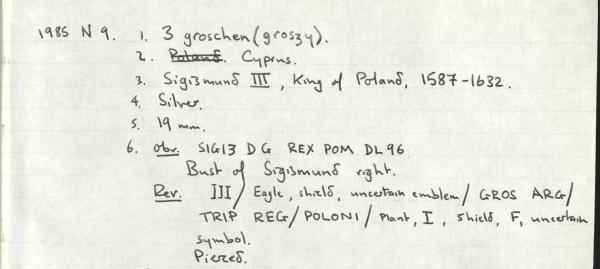 1985 N 9. 1. 3 groschen (groszy).
2. Poland. Cyprus.
3. Sigismund III, King of Poland, 1587-1632.
4. Silver.
5. 19 mm.
6. Obv. SIG13 D G REX POM DL96
Bust of Sigismund right.
Rev. III / Eagle, shield, uncertain emblem / GROS ARG /
TRIP REG / POLONI / Plant, I, shield, F, uncertain
symbol.
Pierced.